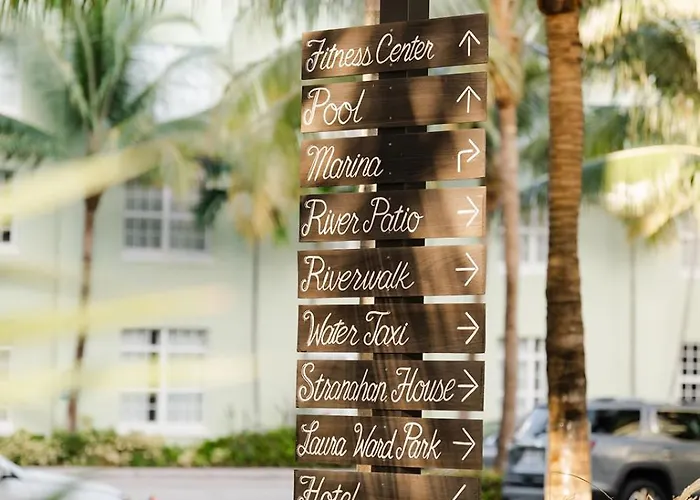 Fitness Center ↑
Pool ↑
Marina ↱
River Patio →
Riverwalk →
Water Taxi →
Stranahan House →
Laura Ward Park →
Hotel